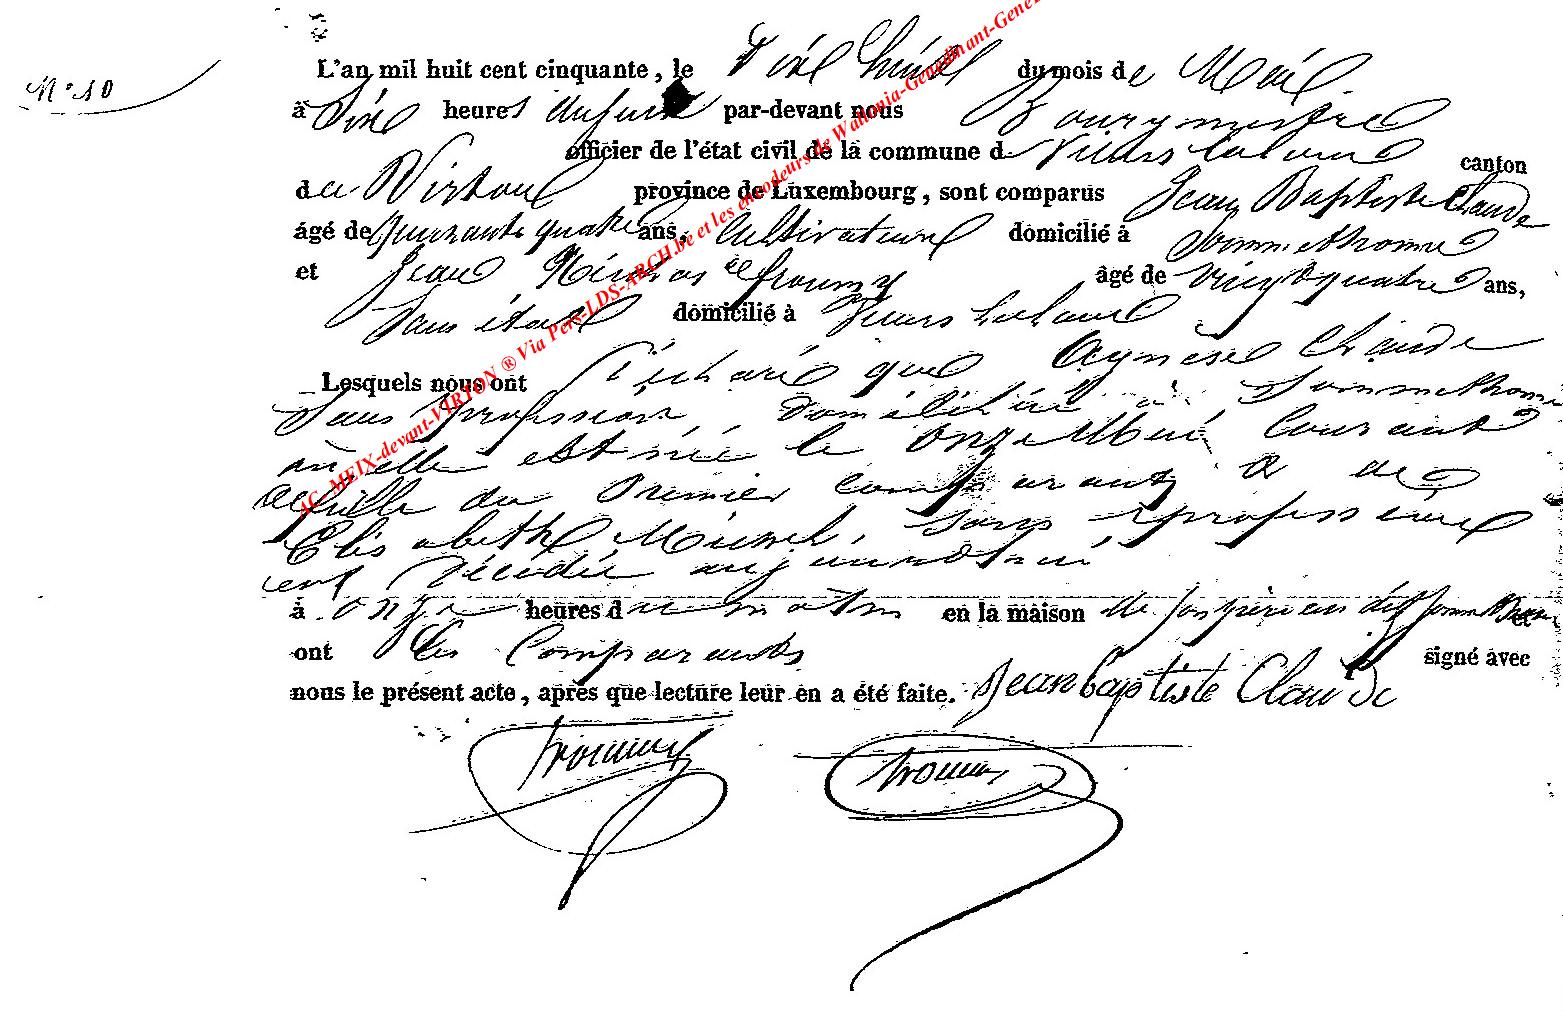 N° 10
L'an mil huit cent cinquante, le dix huit du mois de Mai
à Six heures du soir par-devant nous Bourgmestre
officier de l'état civil de la commune d Villers la loue canton
de Virton province de Luxembourg, sont comparus Jean Baptiste Claude
âgé de quarante quatre ans, Cultivateur domicilié à Sommethonne
et Jean Nicolas froumy âgé de vingt quatre ans,
Sans état domicilié à Villers la loue
Lesquels nous ont déclaré que Agnese Claude
Sans profession domiciliée à Sommethonne
où elle est née le onze Mai Courant
fille du premier comparant & de
Elisabeth Michel, sans profession
est décédée aujourd'hui
à onze heures du matin en la maison de son père audit Sommethonne et
ont les Comparants signé avec
nous le présent acte, après que lecture leur en a été faite. Jean baptiste Claude
AC-MEIX-devant-VIRTON ® Via Pers-LDS-ARCH.be et les encodeurs de Wallonia-Genedinant-Gene